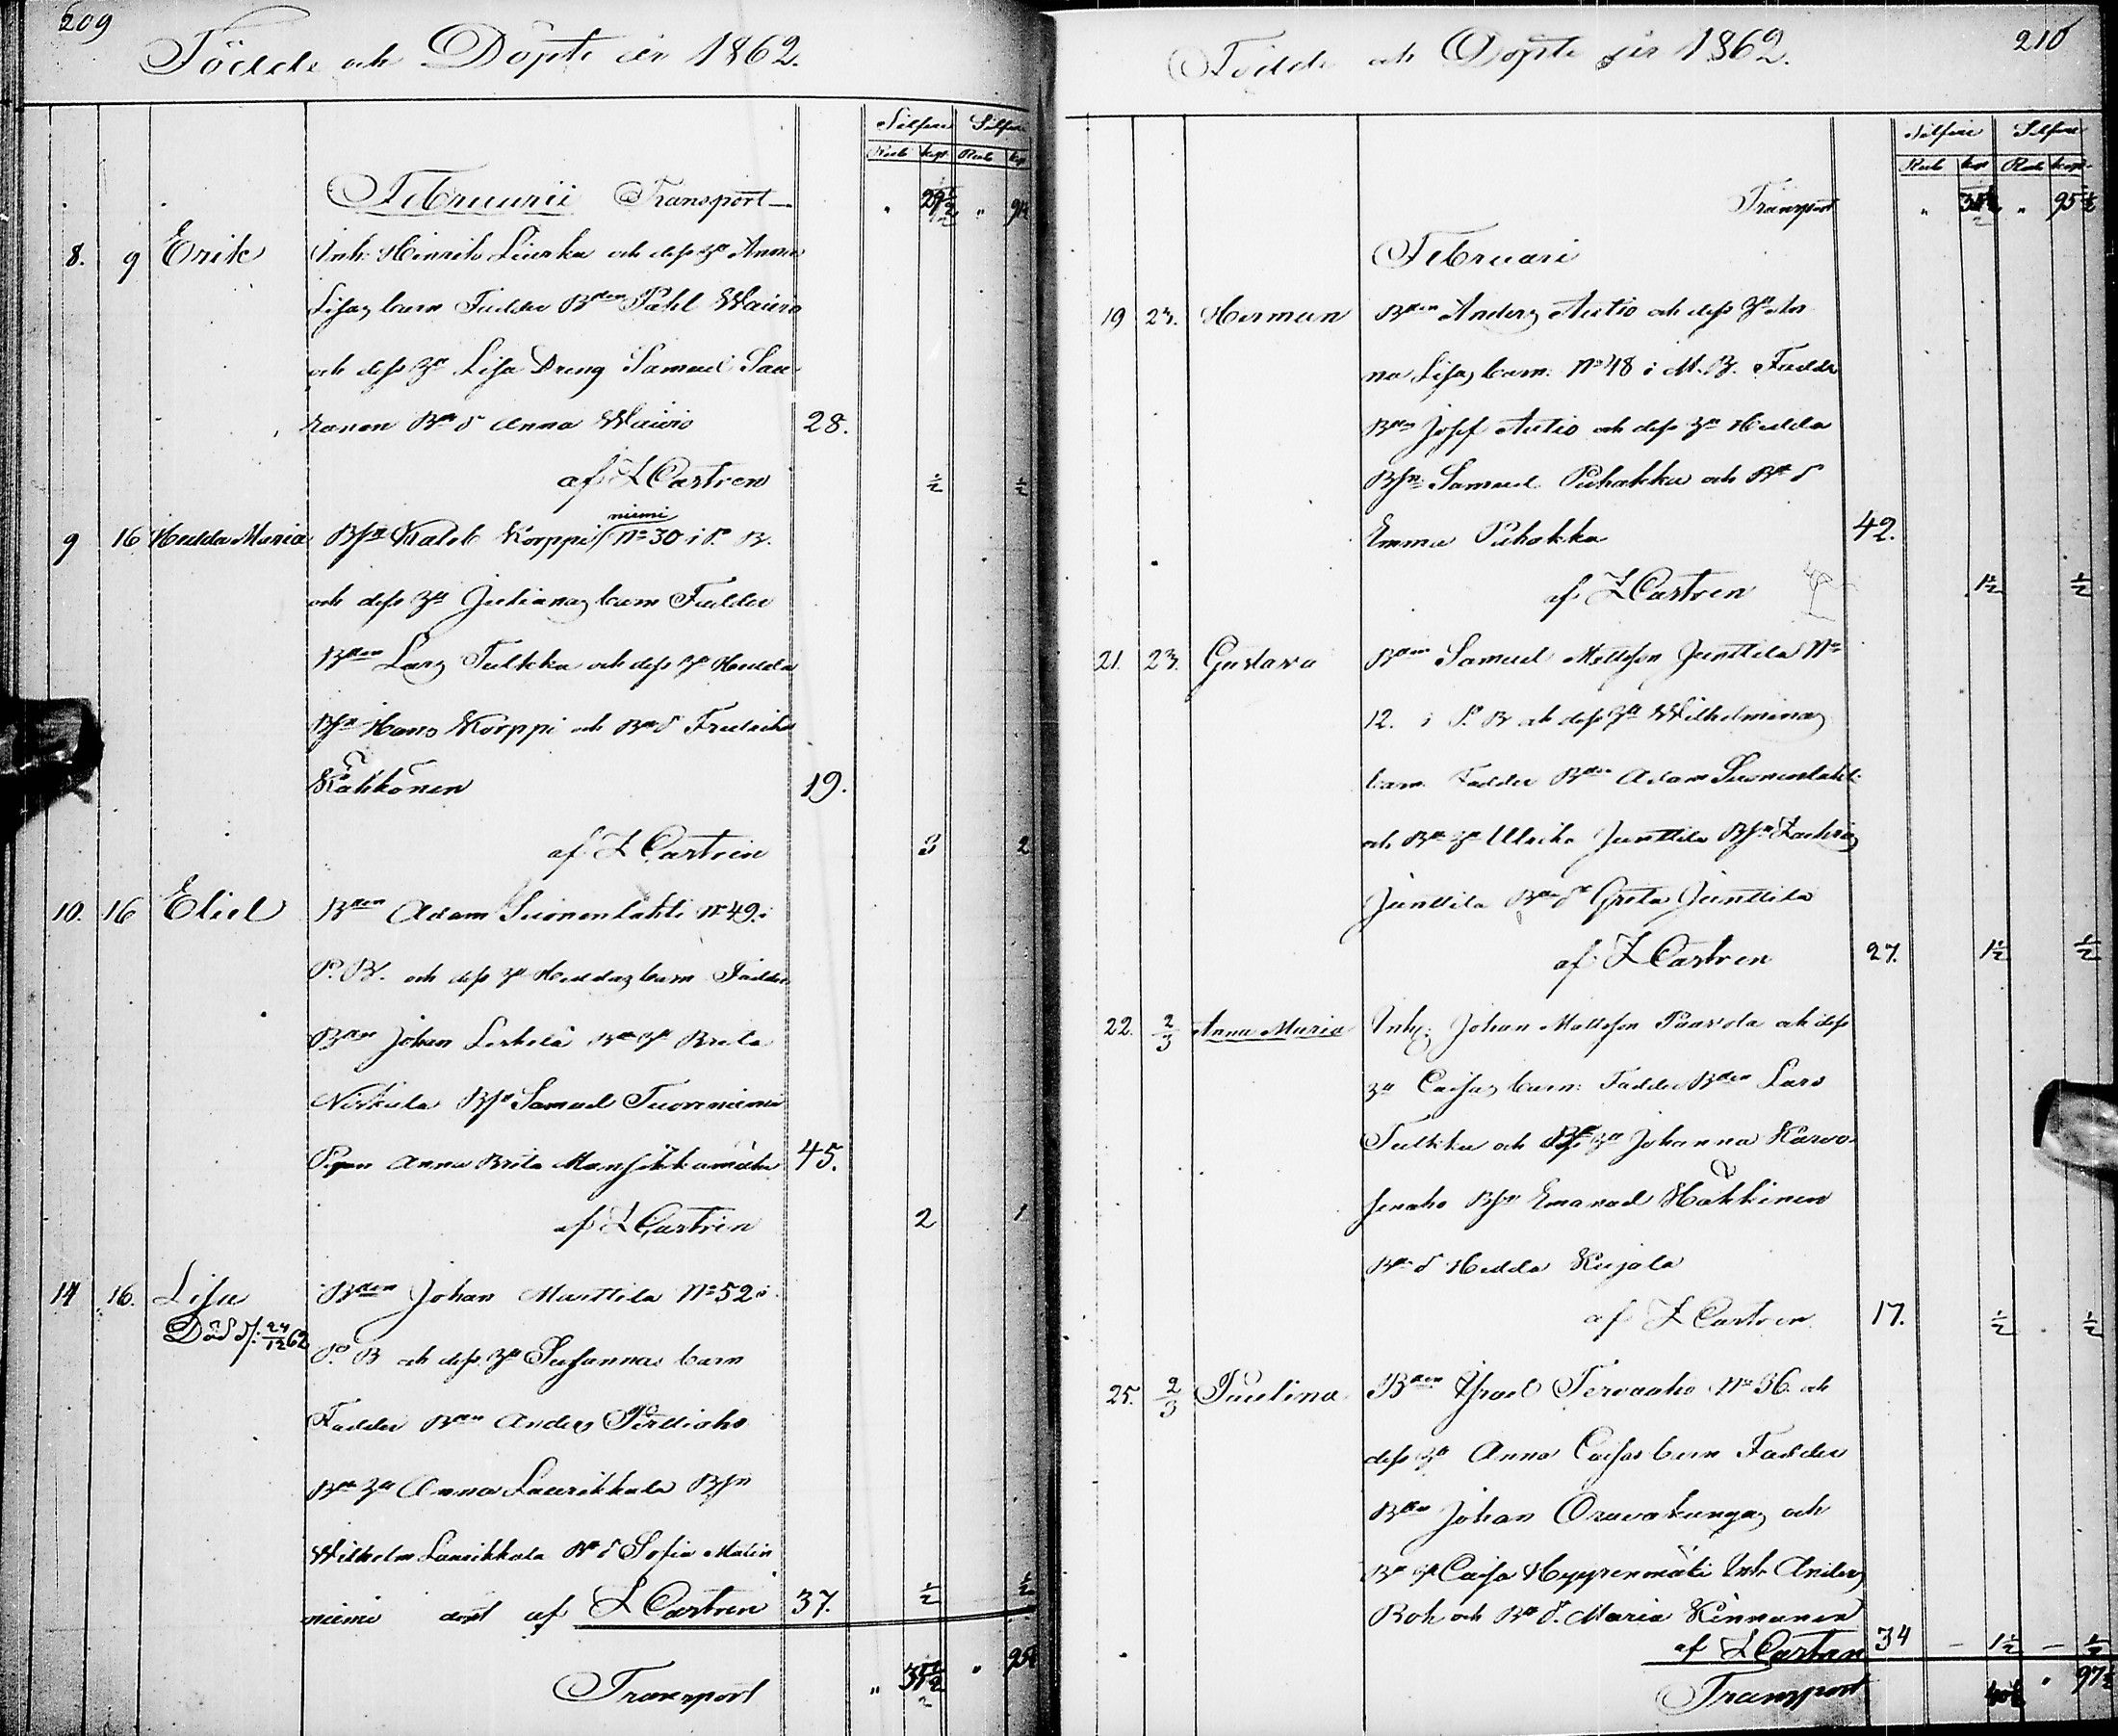 209
Födde och Döpte år 1862.
Silfver Silfver
Rub kop Rub kop
Februarii Transport
8. 9 Erik Inh: Hinrik och dess Hu Anna
Lisas barn Fadder Bden Pähl Wainio
och dess Hu Lisa Dreng Samuel Sau-
ranen Ba d Anna Wainio 28.
af Z Castren ½ ½
9 16 Hedda Maria Bsn Kaleb Korppi niemi No 30 i P. B.
och dess Hu Julianas barn Fadder
Bden Lars Tulkku och dess Hu Hedda
Bsn Hans Korppi och Ba d Fredrika
Käkkönen 19.
af Z Castren 3 2
10. 16 Eliel Bden Adam Suonenlahti No 49 i
P. B. och dess Hu Heddas barn Fadder
Bden Johan Leskelä Ba Hu Brita
Niskala Bsn Samuel Tuoreniemi
Pigan Anna Brita Mansikkamäki 45.
af Z Castren 2 1
14 16. Lisa Bden Johan Marttila No 52 i
Död d. 24/12 62 P. B och dess Hu Susannas barn
Fadder Bden Anders
Ba Hu Anna Laurikkala Bsn
Wilhelm Laurikkala Ba d Sofia Malin
niemi döpt af Z Castren 37. ½ ½
Transport
210
Födde och Döpte år 1862.
Silfver Silfver
Rub kop Rub kop
Transport 95½
Februari
19 23. Herman Bden Anders Autio och dess Hu An-
na Lisas barn. No 48 i M. B. Fadder
Bden Josef Autio och dess Hu Hedda
Bsn Samuel Puhakka och Ba d
Emma Puhakka 42.
af Z Castren 1½ ½
21. 23. Gustava Bden Samuel Mattsson Junttila No
12. i P. B och dess Hu Wilhelminas
barn. Fadder Bden Adam Suonenlahti
och Ba Hu Ulrika Junttila Bsn Zachris
Junttila Ba d Greta Junttila
af Z Castren 27. 1½ ½
22. 2/3 Anna Maria Inhs: Johan Mattsson Paavola och dess
Hu Caisas barn: Fadder Bden Lars
Tulkku och Hu Johanna Karvo-
senaho Bsn Emanuel Häkkinen
Ba d Hedda Kujala
af Z Castren 17. ½ ½
25. 2/3 Paulina Bden Israel Tervaaho No 36. och
dess Hu Anna Caisas barn Fadder
Bden Johan Oravakangas och
Ba Hu Caisa Hyypenmäki Inh Anders
Roh och Ba d. Maria Kinnunen
af Z Castren 34 – 1½ – ½
Transport 97½